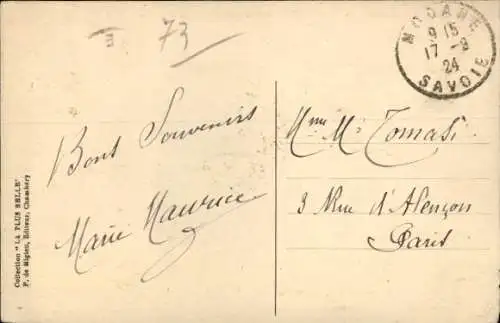 73
MODANE
9 15
17 - 9
24
SAVOIE
Bons Souvenirs
Marie Maurice
Mme M. Tomasi
3 Rue d'Alençon
Paris
Collection "LA PLUS BELLE"
Editeur, Chambéry